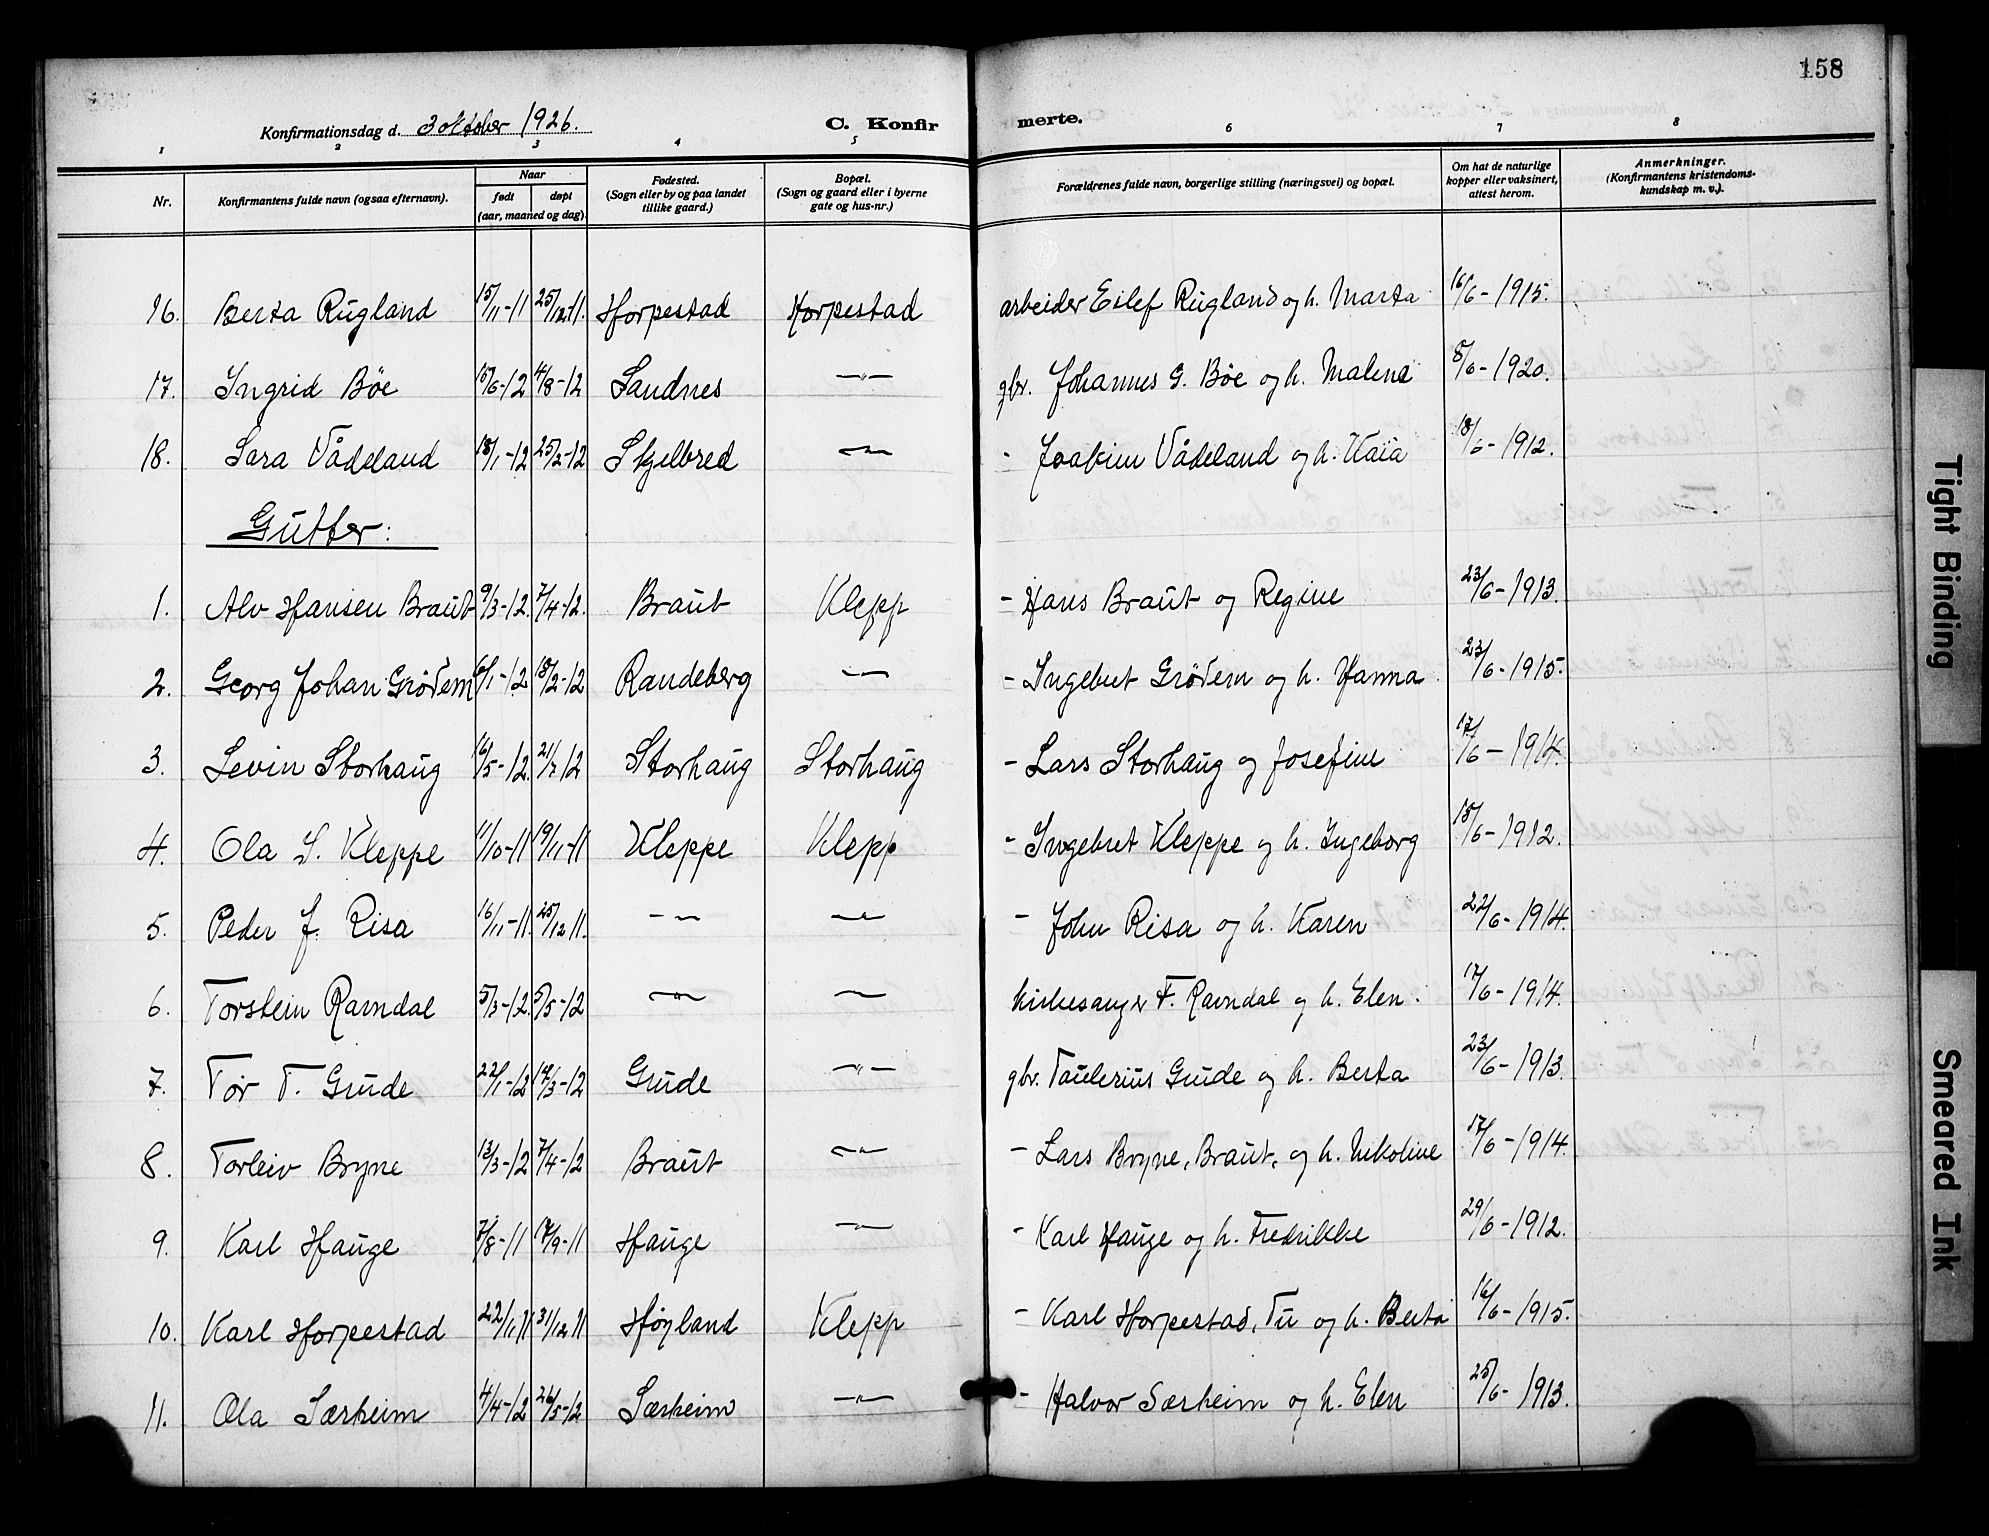 158
Konfirmationsdag d. 3 oktober 1926. C. Konfir merte.
1 2 3 4 5 6 7 8
Nr. Konfirmantens fulde navn (ogsaa efternavn). Naar født døpt (aar, maaned og dag). Fødested. (Sogn eller by og paa landet tillike gaard.) Bopæl. (Sogn og gaard eller i byerne gate og hus-nr.) Forældrenes fulde navn, borgerlige stilling (næringsvei) og bopæl. Om hat de naturlige kopper eller vaksinert, attest herom. Anmerkninger. (Konfirmantens kristendoms-kundskap m. v.).
16. Berta Rugland 15/11-11 25/12-11. Horpestad Horpestad arbeider Eilef Rugland og h. Marta 16/6-1915.
17. Ingrid Bøe 15/6-12 4/8-12 Sandnes —"— gbr. Johannes G. Bøe og h. Malene 8/6-1920.
18. Sara Vådeland 18/1-12 25/2-12 —"— - Joakim Vådeland og h. Kaia 18/6-1912.
Gutter:
1. Alv Hansen Braut 9/3-12. 7/4-12. Braut Klepp - Hans Braut og Regine 23/6-1913.
2. Georg Johan Grødem 6/1-12 18/2-12 Randeberg —"— - Ingebret Grødem og h. Hanna 23/6-1915.
3. Levin Storhaug 16/5-12. 21/7-12 Storhaug Storhaug - Lars Storhaug og Josefine 17/6-1914.
4. Ola I. Kleppe 11/10-11 19/11-11 Kleppe Klepp - Ingebret Kleppe og h. Ingeborg 18/6-1912.
5. Peder J. Risa 16/11-11. 25/12-11. —"— —"— - John Risa og h. Karen 22/6-1914.
6. Torstein Ravndal 5/3-12. 5/5-12 —"— —"— kirkesanger T. Ravndal og h. Elen. 17/6-1914.
7. Tor T. Grude 22/1-12 /3-12 Grude —"— gbr. Taulerius Grude og h. Berta 23/6-1913.
8. Torleiv Bryne 13/3-12 7/4-12 Braut —"— - Lars Bryne, Braut, og h. Nikoline 17/6-1914.
9. Karl Hauge 7/8-11 17/9-11 Hauge —"— - Karl Hauge og h. Fredrikke 29/6-1912.
10. Karl Horpestad 22/11-11 31/12-11 Høyland Klepp - Karl Horpestad, Tu og h. Berta 16/6-1915.
11. Ola Særheim 4/4-12 26/5-12 Særheim —"— - Halvor Særheim og h. Elen 25/6-1913.
Tight Binding
Smeared Ink